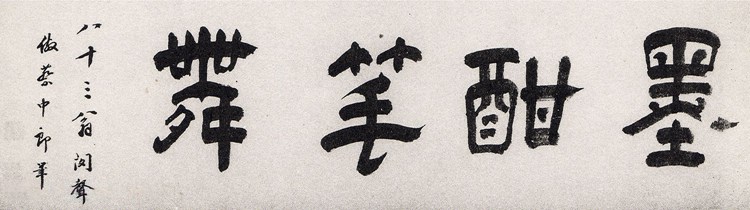 墨酣笔舞
八十三翁閬聲
倣蔡中郎筆